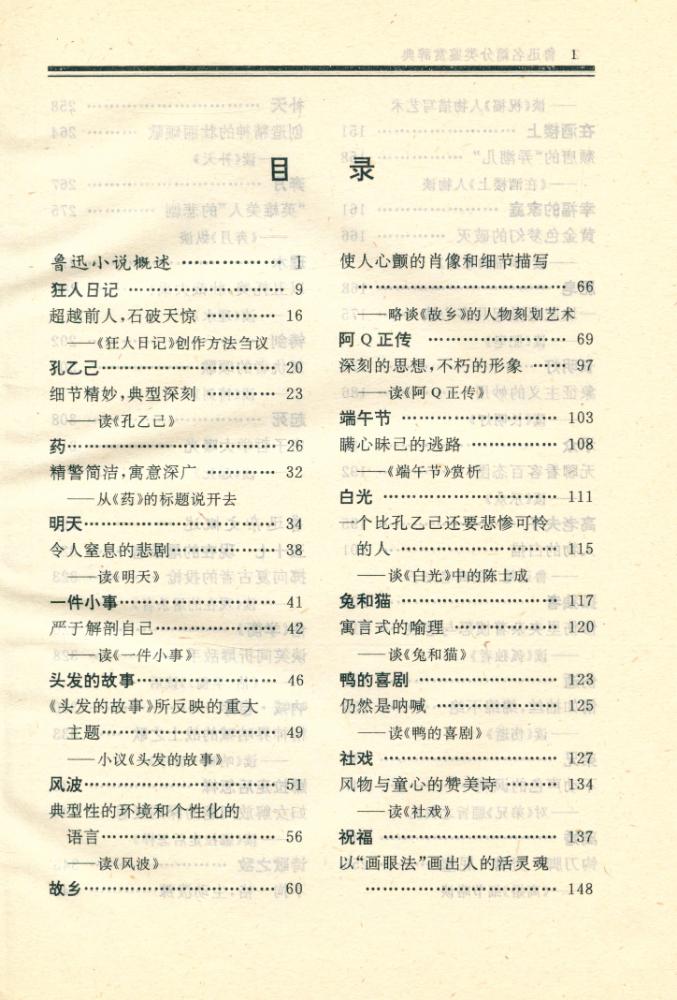 1
目 录
鲁迅小说概述 …………… 1
狂人日记 ………………… 9
超越前人，石破天惊 ……… 16
——《狂人日记》创作方法刍议
孔乙己…………………… 20
细节精妙，典型深刻 ……… 23
——读《孔乙己》
药………………………… 26
精警简洁，寓意深广 ……… 32
——从《药》的标题说开去
明天……………………… 34
令人窒息的悲剧…………… 38
——读《明天》
一件小事………………… 41
严于解剖自己……………… 42
——读《一件小事》
头发的故事……………… 46
《头发的故事》所反映的重大
主题…………………… 49
——小议《头发的故事》
风波……………………… 51
典型性的环境和个性化的
语言…………………… 56
——读《风波》
故乡……………………… 60
使人心颤的肖像和细节描写
………………………… 66
——略谈《故乡》的人物刻划艺术
阿Q正传 ……………… 69
深刻的思想，不朽的形象 …… 97
——读《阿Q正传》
端午节 ………………… 103
瞒心昧己的逃路 ………… 108
——《端午节》赏析
白光 …………………… 111
一个比孔乙己还要悲惨可怜
的人 ………………… 115
——谈《白光》中的陈士成
兔和猫 ………………… 117
寓言式的喻理 …………… 120
——谈《兔和猫》
鸭的喜剧 ……………… 123
仍然是呐喊 ……………… 125
——读《鸭的喜剧》
社戏 …………………… 127
风物与童心的赞美诗 ……… 134
——读《社戏》
祝福 …………………… 137
以“画眼法”画出人的活灵魂
……………………… 148